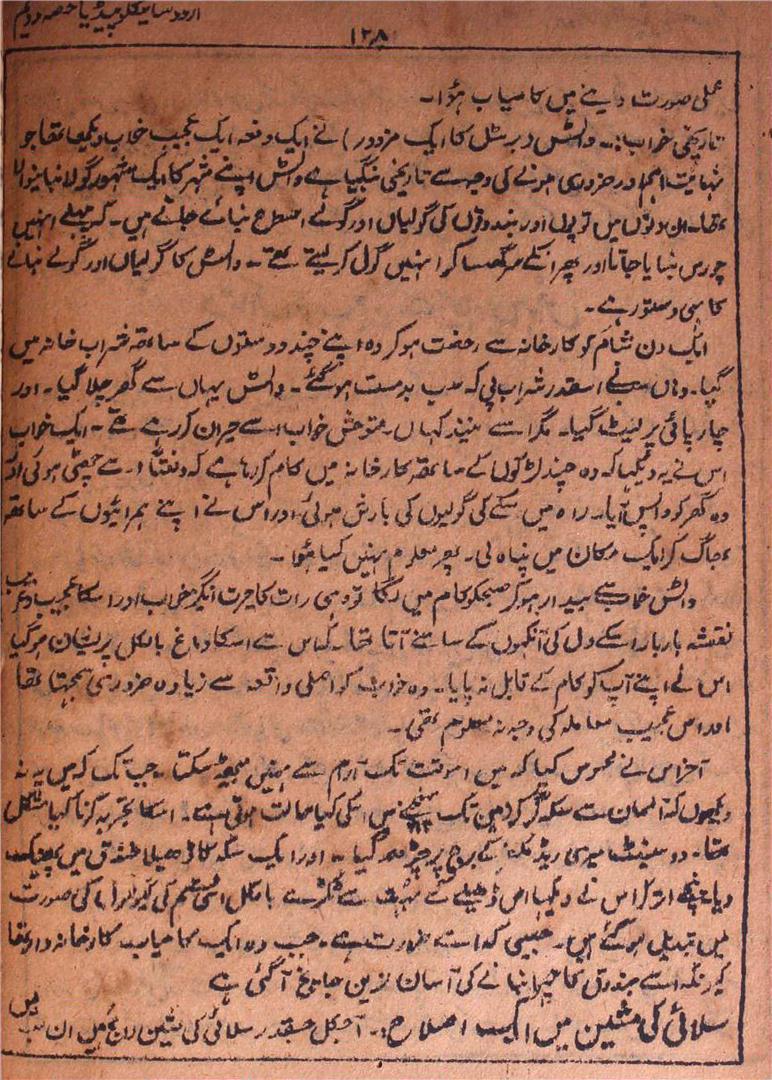 اردو سائیکلوپیڈیا حصہ دوئم
۱۲۸
عملی صورت دینے میں کامیاب ہؤا۔
تاریخی خواب:۔ والٹس (برسٹل کا ایک مزدور) نے ایک دفعہ ایک عجیب خواب دیکھا تھا جو
نہایت اہم اور ضروری ہونے کی وجہ سے تاریخی بنگیا ہے والٹس اپنے شہر کا ایک مشہور گولا بنانیوالا
تھا۔ ان دنوں میں توپوں اور بندوقوں کی گولیاں اور گولے اسطرح بنائے جاتے ہیں۔ کہ پہلے انہیں
چورس بنایا جاتا اور پھر انکے سر گھسا کر انہیں گول کر لیتے تھے۔ والٹس کا گولیاں اور گولے بنانے
کا یہی دستور ہے۔
ایک دن شام کو کارخانہ سے رخصت ہو کر وہ اپنے چند دوستوں کے ساتھ شراب خانہ میں
گیا۔ وہاں سبنے اسقدر شراب پی کہ سب بدمست ہو گئے۔ والٹس یہاں سے گھر چلا گیا۔ اور
چارپائی پر لیٹ گیا۔ مگر اسے نیند کہاں۔ متوحش خواب اسے حیران کر رہے تھے۔ ایک خواب
اس نے یہ دیکھا کہ وہ چند لڑکوں کے ساتھ کارخانہ میں کام کر رہا ہے کہ دفعتاً اسے چھٹی ہو گئی اور
وہ گھر کو واپس آیا۔ راہ میں سکے کی گولیوں کی بارش ہوئی اور اس نے اپنے ہمرائیوں کے ساتھ
بھاگ کر ایک مکان میں پناہ لی۔ پھر معلوم نہیں کیا ہؤا۔
والٹس خواب سے بیدار ہو کر صبحکو کام میں لگا تو وہی رات کا حیرت انگیز خواب اور اسکا عجیب و غریب
نقشہ بار بار اسکے دل کی آنکھوں کے سامنے آتا تھا۔ اس سے اسکا دماغ بالکل پریشان ہو گیا
اس نے اپنے آپ کو کام کے قابل نہ پایا۔ وہ خواب کو اصلی واقعہ سے زیادہ ضروری سمجھتا تھا
اور اس عجیب معاملہ کی وجہ نہ معلوم تھی۔
آخر اس نے محسوس کیا کہ میں اسوقت تک آرام سے نہیں بیٹھ سکتا۔ جب تک کہ میں یہ نہ
دیکھوں کہ آسمان سے سکہ گر کر زمین تک پہنچنے میں اسکی کیا حالت ہوتی ہے۔ اسکا تجربہ کرنا کیا مشکل
تھا۔ وہ سینٹ میری ریڈ کلف کے برج پر چڑھ گیا۔ اور ایک سکہ کا ڈھیلا خندق میں پھینک
دیا نیچے اتر کر اس نے دیکھا اس ڈھیلے کے بہت سے ٹکڑے بالکل اسی قسم کی گولیوں کی صورت
میں تبدیل ہو گئے ہیں۔ جیسی کہ اسے ضرورت ہے۔ جب وہ ایک کامیاب کارخانہ دار تھا
کیونکہ اسے بندوق کا چھرا بنانے کی آسان ترین جانچ آ گئی ہے
سلائی کی مشین میں ایک اصلاح:۔ آجکل جسقدر سلائی کی مشین رائج ہیں ان سب میں